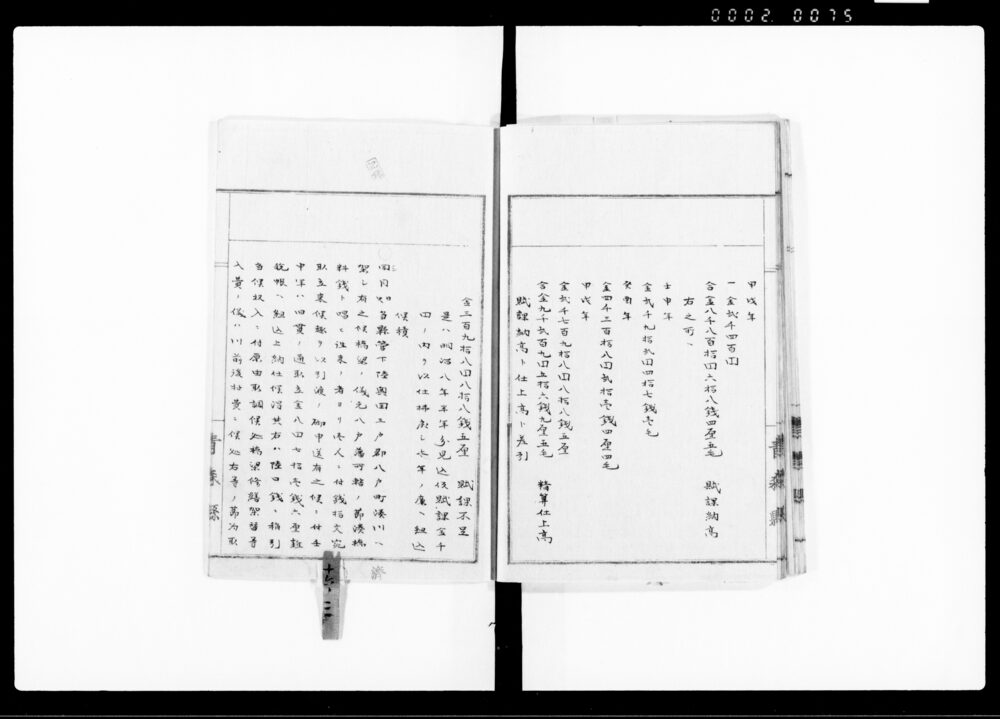 0002.0075
甲戌年
一金弐千四百円
合金八千八百拾円六拾八銭四厘五毛　賦課納高
右之所ヘ
壬申年
金弐千九拾弐円四拾七銭壱毛
癸酉年
金四千三百拾八円弐拾壱銭四厘四毛
甲戌年
金弐千七百九拾八円八拾八銭五厘
合金九千弐百九円五拾六銭九厘五毛　精算仕上高
賦課納高ト仕上高ト差引
青森縣
金三百九拾八円八拾八銭五厘　賦課不足
是ハ明治八年
円ノ内ヲ以仕拂
候積
当縣管下陸奥国三戸郡八戸町湊川ヘ
架シ有之候橋梁ノ儀元八戸藩可轄ノ節湊橋
料銭ト唱ヒ往来ノ者ヨリ壱人ニ付銭拾文宛
取立来候趣ヲ以引渡ノ御申送有之候ニ付壬
申年ハ四貫ノ通取立金八円七拾壱銭六厘
税帳ヘ組込上納仕候
当候収入ニ付原由取調候処橋梁修繕架替等
入費ノ儀ハ川前後村費ニ候処右等ノ節為取
青森縣
濟
十六ノ二